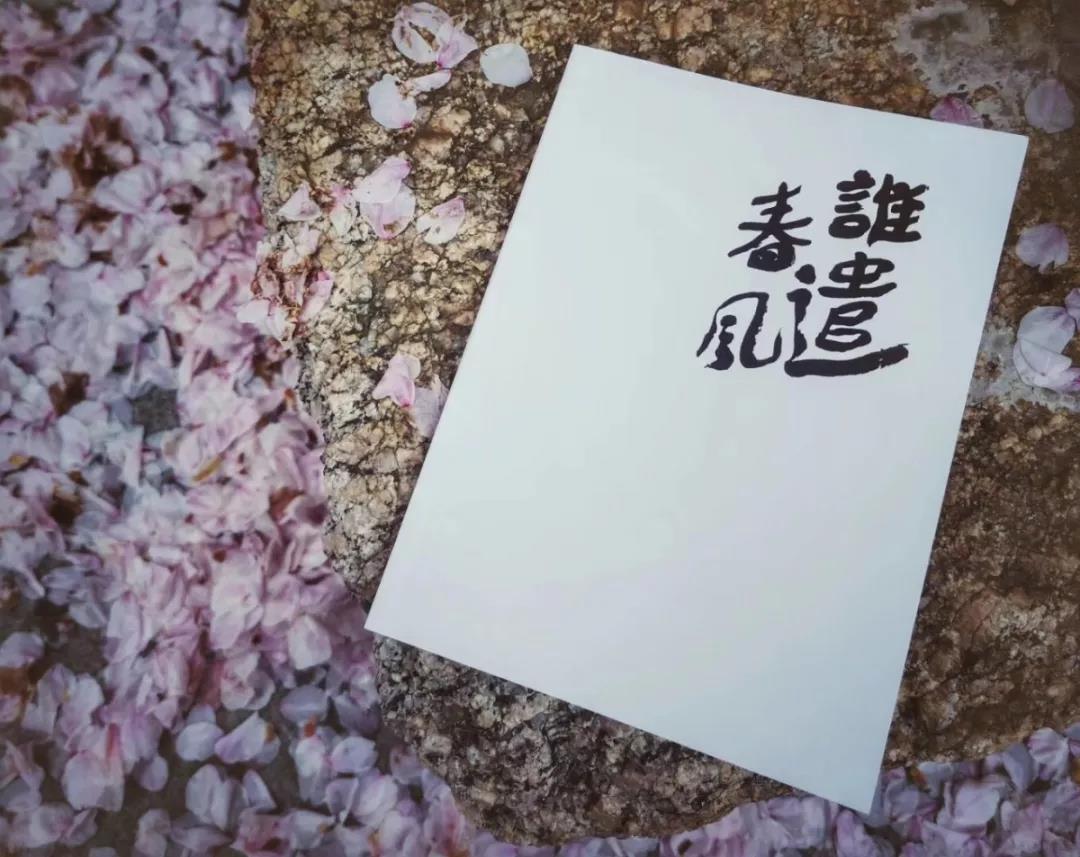 誰遣
春風